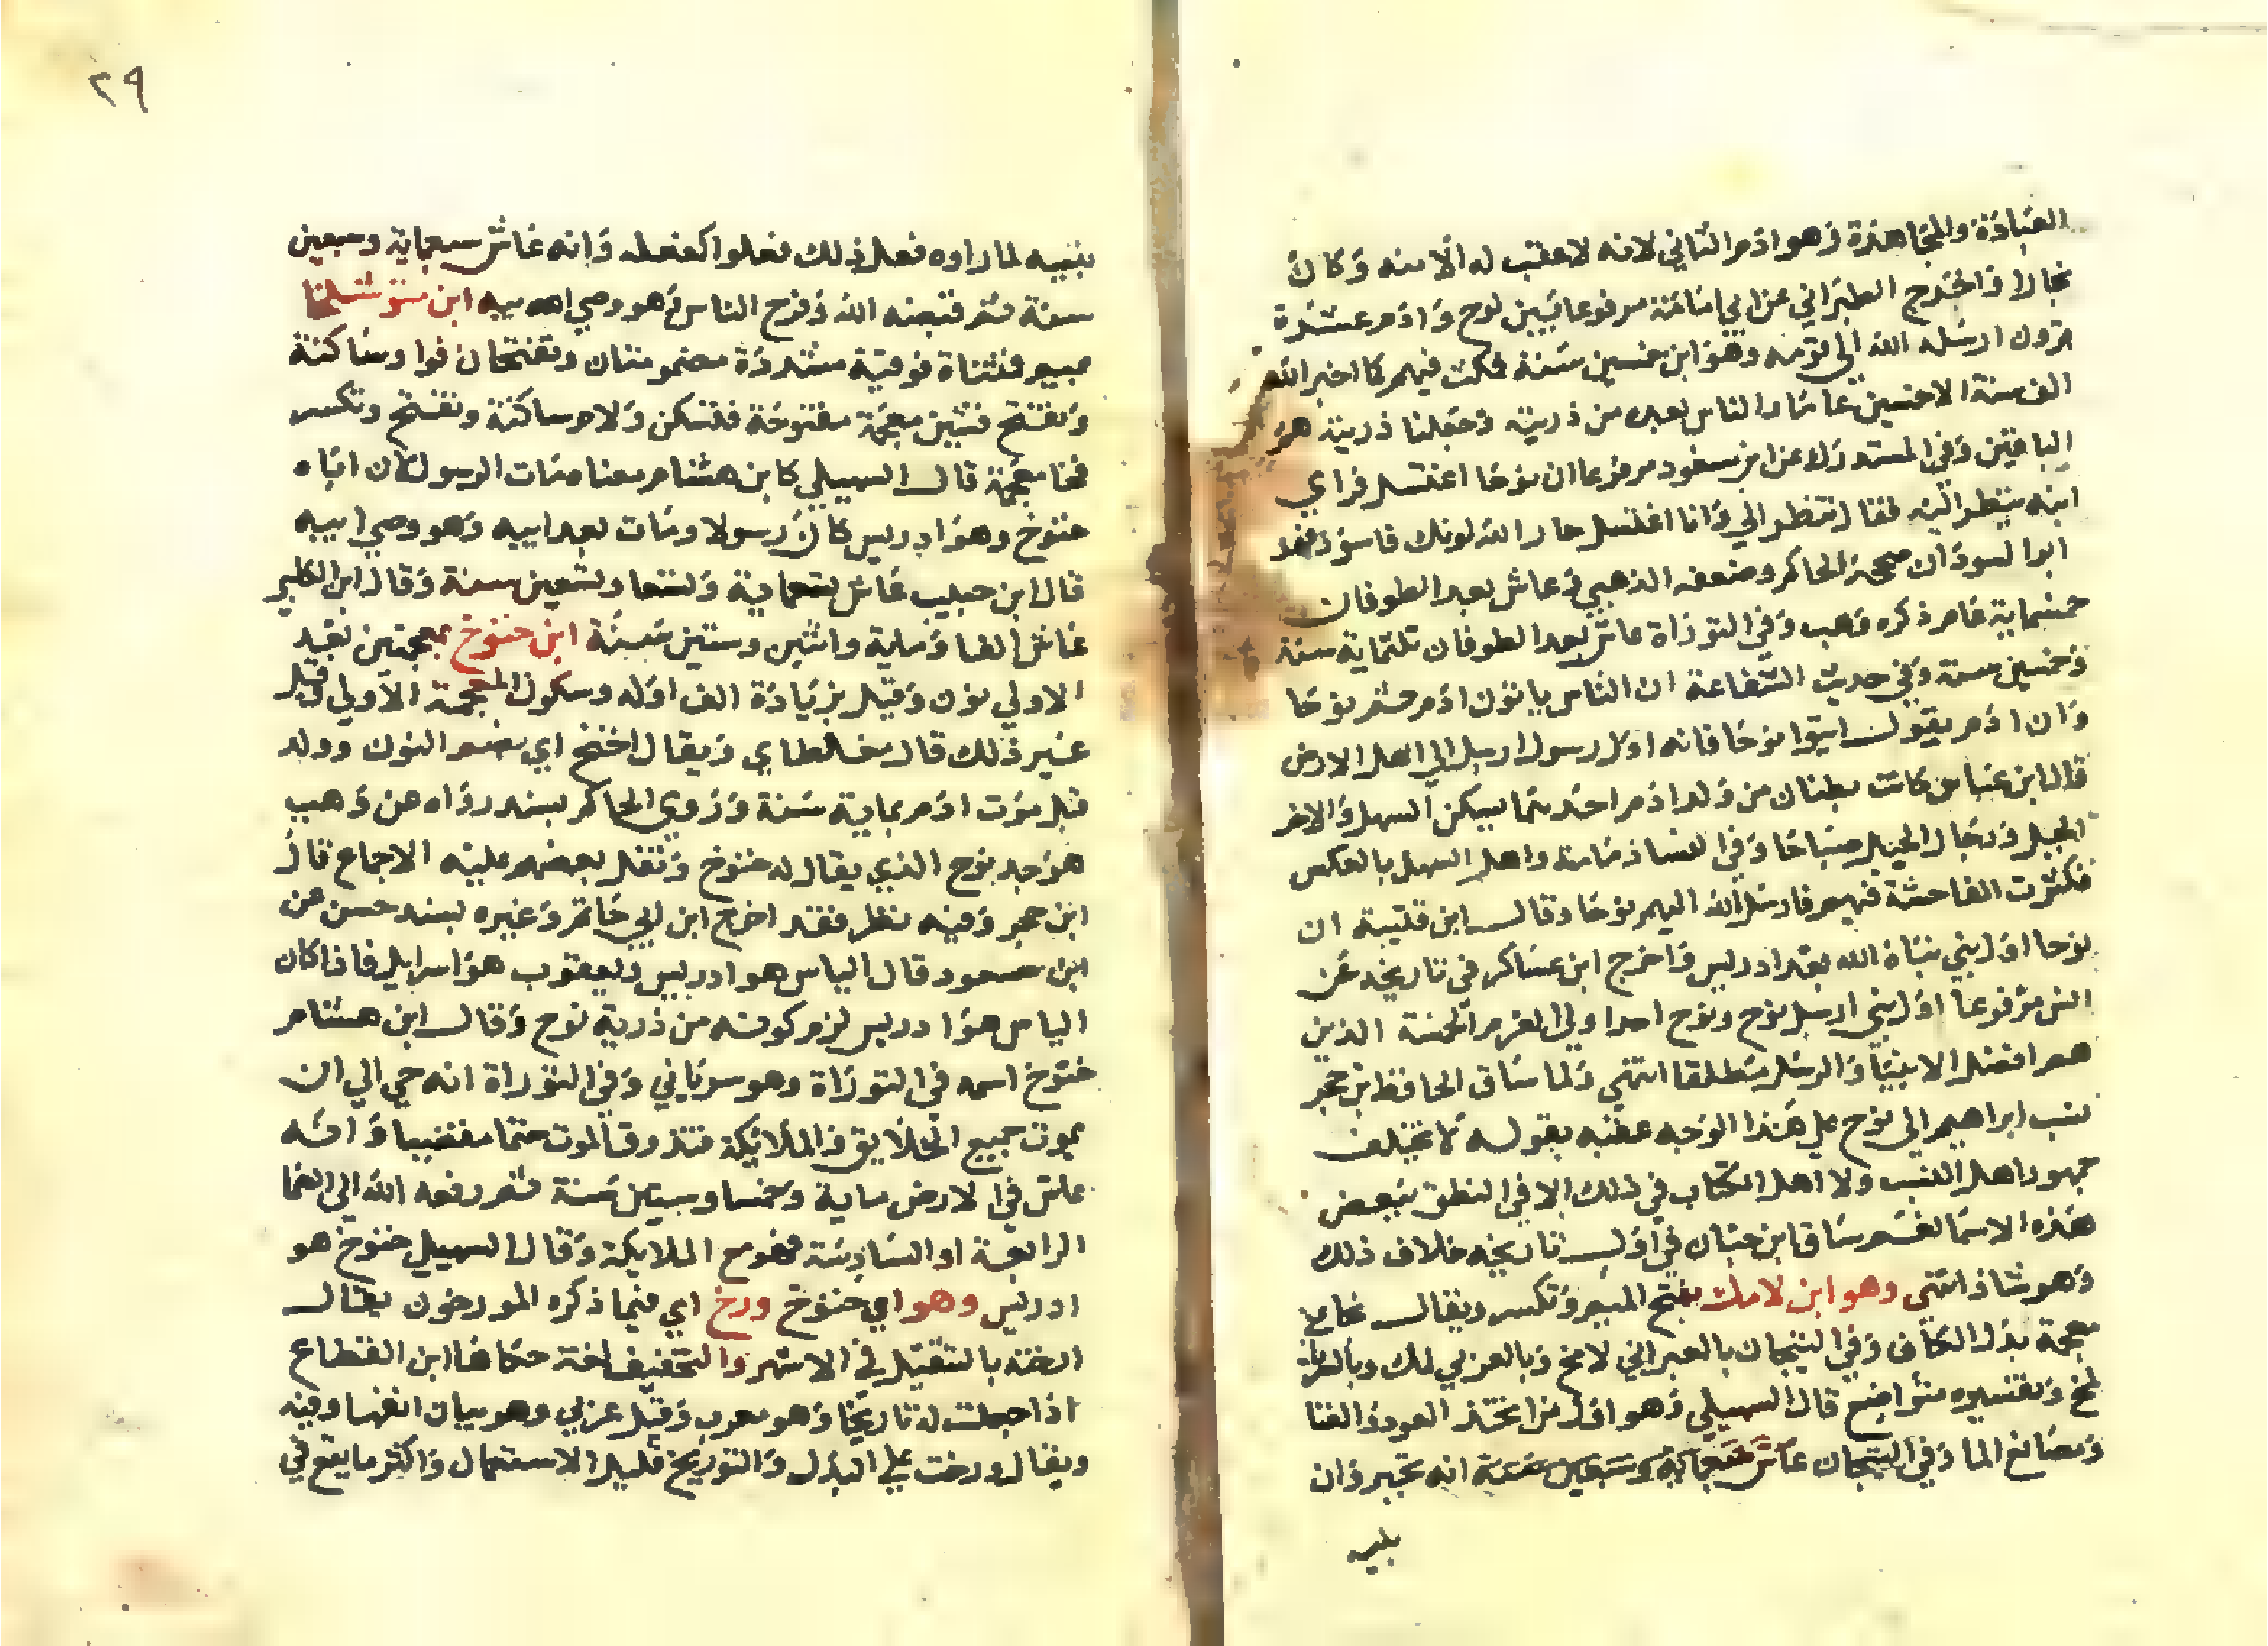 العبادة والمجاهدة وهو ادم الثاني لانه لا عقب له الا منه وكان
نجارا واخرج الطبراني عن ابي امامة مرفوعا بين نوح وادم عشرة
قرون ارسله الله الي قومه وهو ابن خمسين سنة فمكث فيهم كما اخبر الله
الف سنة الا خمسين عاما والناس بعده من ذريته وجعلنا ذريته هم
الباقين وفي المستدرك عن ابن مسعود مرفوعا ان نوحا اغتسل فراي
ابنه ينظر اليه فقال تنظر الي وانا اغتسل حار الله لونك فاسود فهو
ابو السودان صححه الحاكم وضعفه الذهبي وعاش بعد الطوفان
خمسماية عام ذكره وهب وفي التوراة عاش بعد الطوفان ثلثماية سنة
وخمسين سنة وفي حديث الشفاعة ان الناس ياتون ادم ثم نوحا
وان ادم يقول ايتوا نوحا فانه اول رسول ارسل الي اهل الارض
قال ابن عباس كانت بطنان من ولد ادم احدهما يسكن السهل والاخر
الجبل ورجال الجبل صباحا وفي النسا ذمامة واهل السهل بالعكس
فكثرت الفاحشة فيهم فارسل الله اليهم نوحا وقال ابن قتيبة ان
نوحا اول نبي نباه الله بعد ادريس واخرج ابن عساكر في تاريخه عن
انس مرفوعا اول نبي ارسل نوح ونوح احد اولي العزم الخمسة الذين
هم افضل الانبيا والرسل مطلقا انتهي ولما ساق الحافظ ابن حجر
نسب ابراهيم الي نوح علي هذا الوجه عقبه بقوله لا يختلف
جمهور اهل النسب ولا اهل الكتاب في ذلك الا في النطق ببعض
هذه الاسما نعم ساق ابن حبان في اول تاريخه خلاف ذلك
وهو شاذ انتهي وهو ابن لامك بفتح الميم وتكسر ويقال بخاء
معجمة بدل الكاف وفي التيجان بالعبراني لامخ وبالعربي لمك وبالسرياني
لمخ وتفسيره متواضع قال السهيلي وهو اول من اتخذ العود والغنا
ومصانع الما وفي التيجان عاش سبعماية وسبعين سنة انه تجبر وان
بنيه
٢٩
بنيه لما راوه فعل ذلك فعلوا كفعله وانه عاش سبعماية وسبعين
سنة ثم قبضه الله وفرح الناس وهو وصي ابيه ابن متوشلخا
بميم فمثناة فوقية مشددة مضمومتان وتفتحان فواو ساكنة
وتفتح فشين معجمة مفتوحة فتسكن ولام ساكنة وتفتح وتكسر
فخا معجمة قال السهيلي كابن هشام معناه مات الرسول لان اباه
خنوخ وهو ادريس كان رسولا ومات بعد ابيه وهو وصي ابيه
قال ابن حبيب عاش تسعماية وتسعا وتسعين سنة وقال ابن الكلبي
عاش الفا وماية واثنين وستين سنة ابن خنوخ بمعجمتين بعد
الاولي نون وقيل بزيادة الف اوله وسكون المعجمة الاولي وقيل
غير ذلك قال مغالطاي ويقال اخنخ اي بضم النون وولد
قبل موت ادم بماية سنة وروي الحاكم بسند رواه عن وهب
هو جد نوح الذي يقال له خنوخ ونقل بعضهم عليه الاجماع قال
ابن حجر وفيه نظر فقد اخرج ابن ابي حاتم وغيره بسند حسن عن
ابن مسعود قال الياس هو ادريس ويعقوب هو اسرايل فاذا كان
الياس هو ادريس لزم كونه من ذرية نوح وقال ابن هشام
خنوخ اسمه في التوراة وهو سرياني وفي التوراة انه حي الي ان
يموت جميع الخلايق والملائكة فتذوق الموت حتما مقضيا وانه
عاش في الارض ماية وخمسا وستين سنة ثم رفعه الله الي السما
الرابعة او السادسة فهو مع الملايكة وقال السهيلي خنوخ هو
ادريس وهو اي خنوخ ورخ اي فيما ذكره المورخون يقال
ارخته بالتثقيل في الاشهر والتخفيف لغة حكاها ابن القطاع
اذا جعلت له تاريخا وهو معرب وقيل عربي وهو بيان انتها وقته
ويقال ورخت علي البدل والتوريخ قليل الاستعمال واكثر ما يقع في